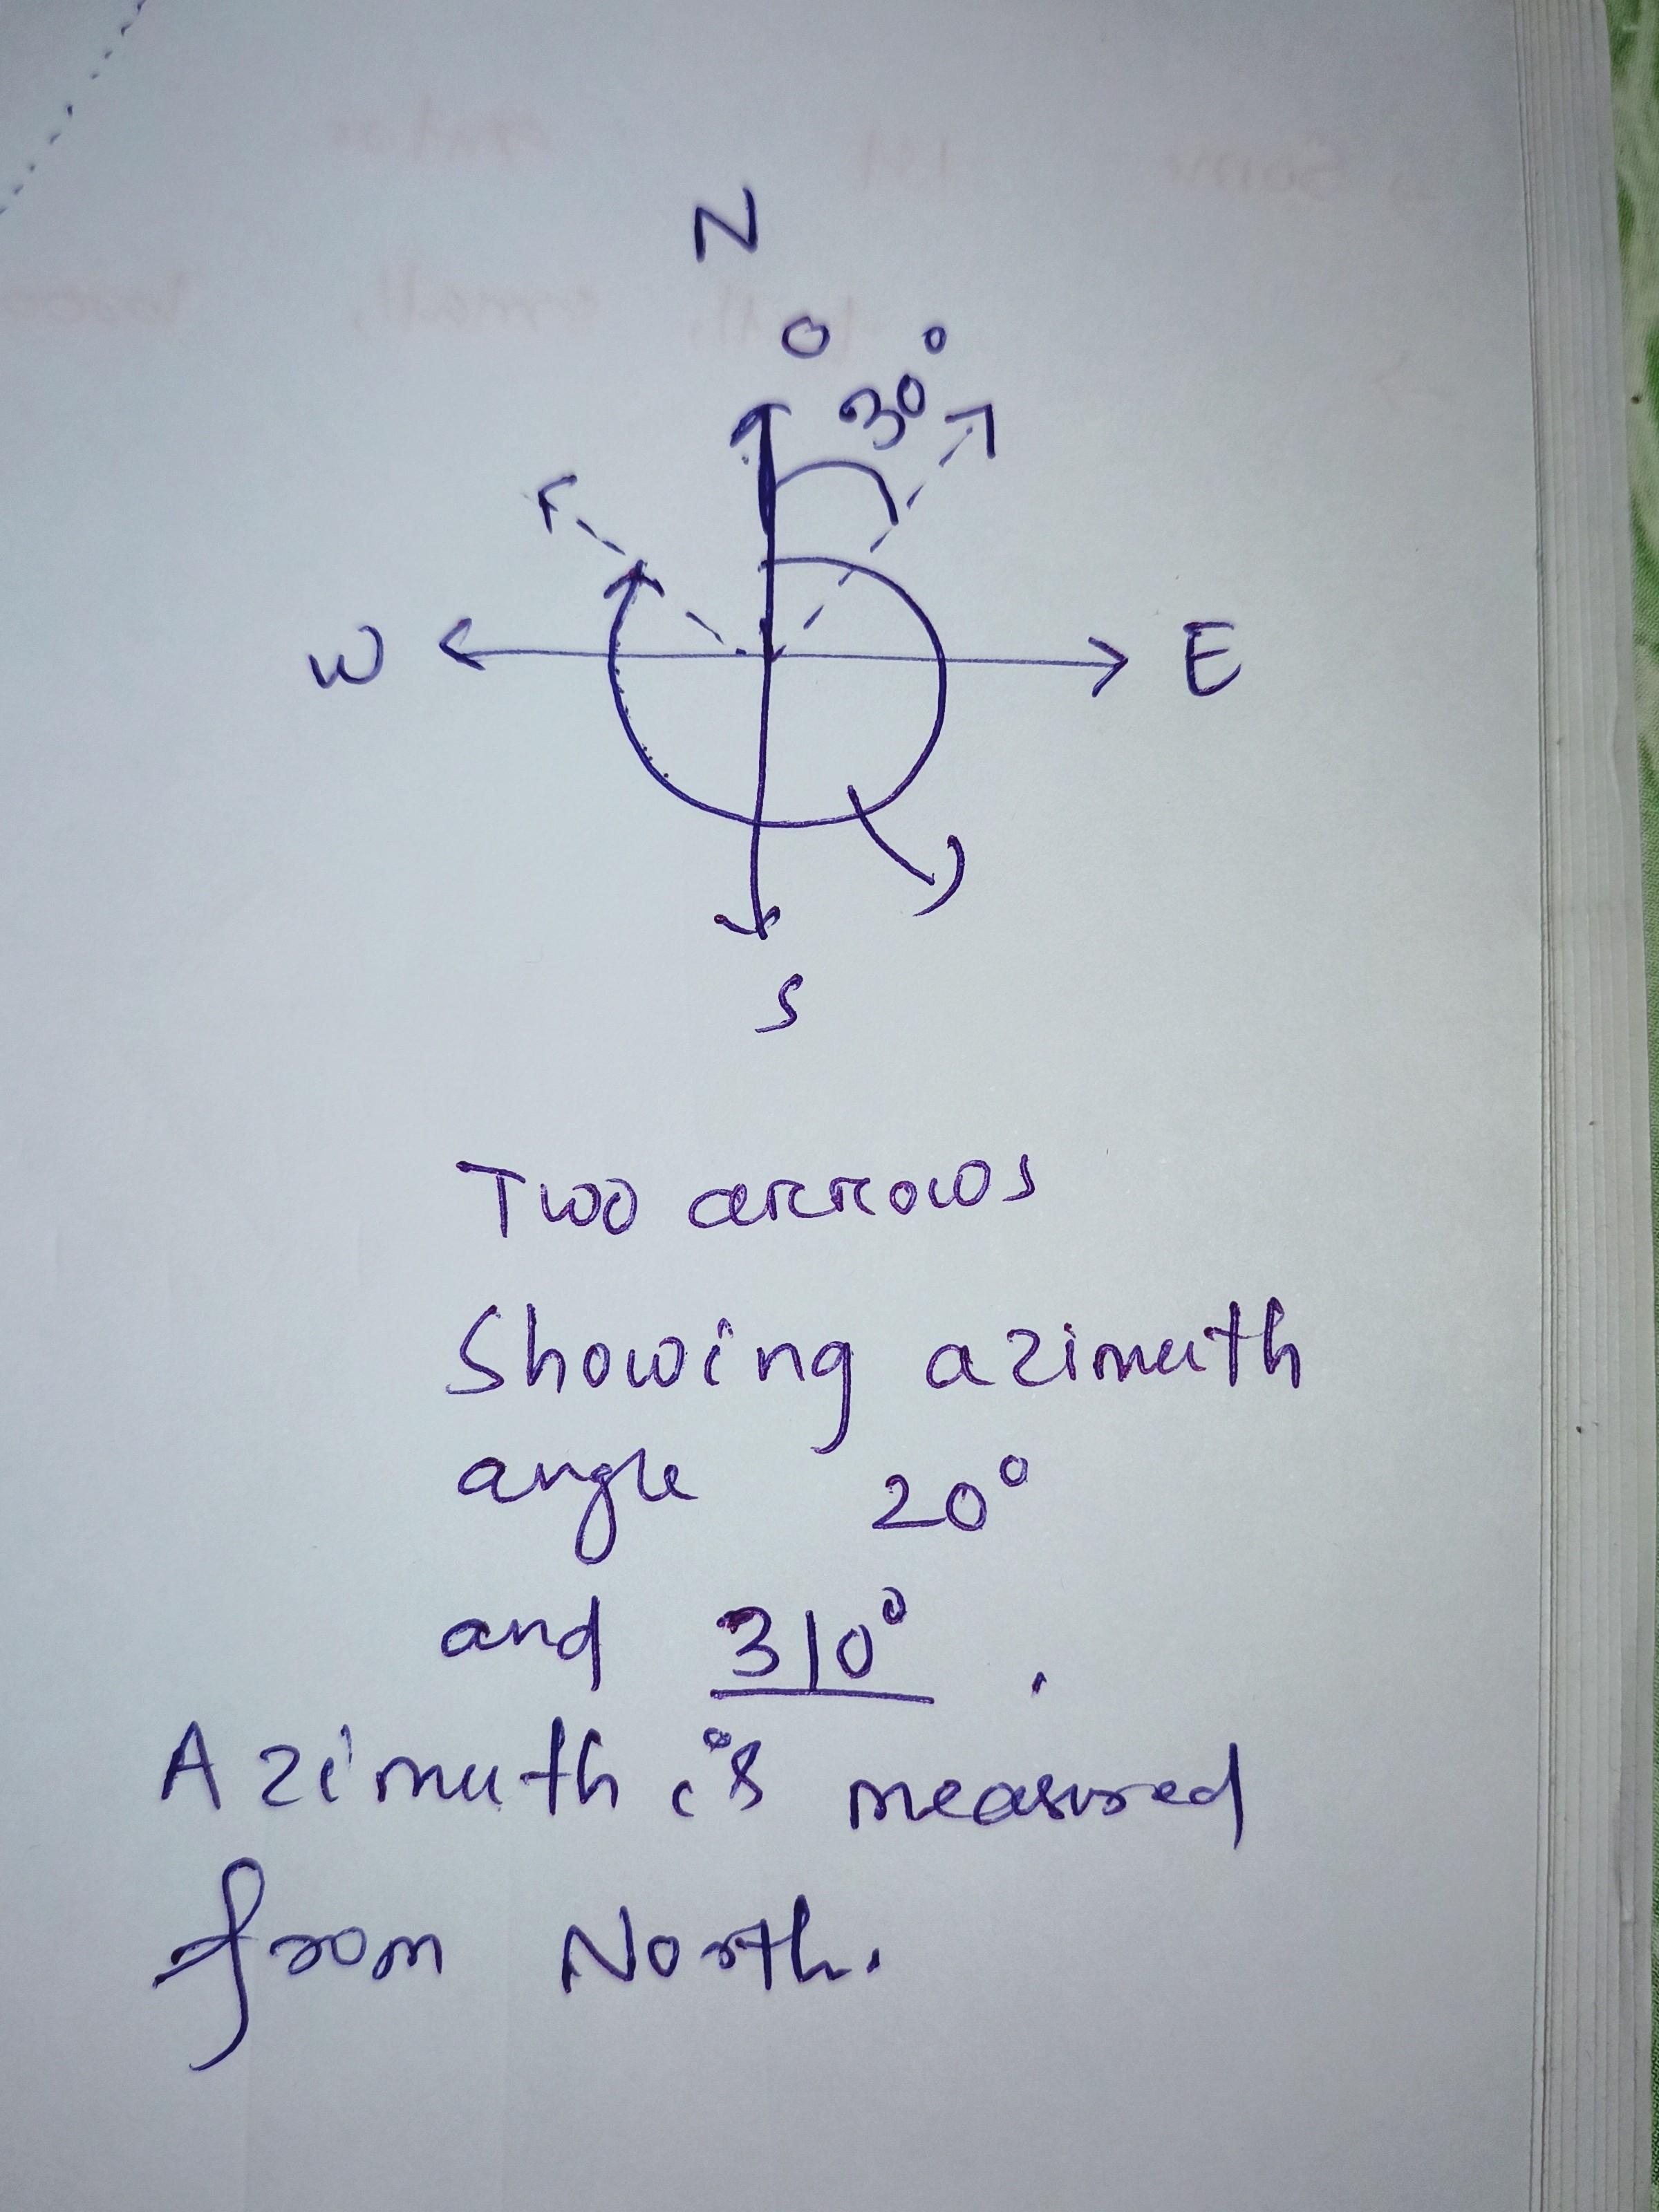 N
0 30°
W E
S
Two arrows
Showing azimuth
angle 20°
and 310° .
Azimuth is measured
from North.